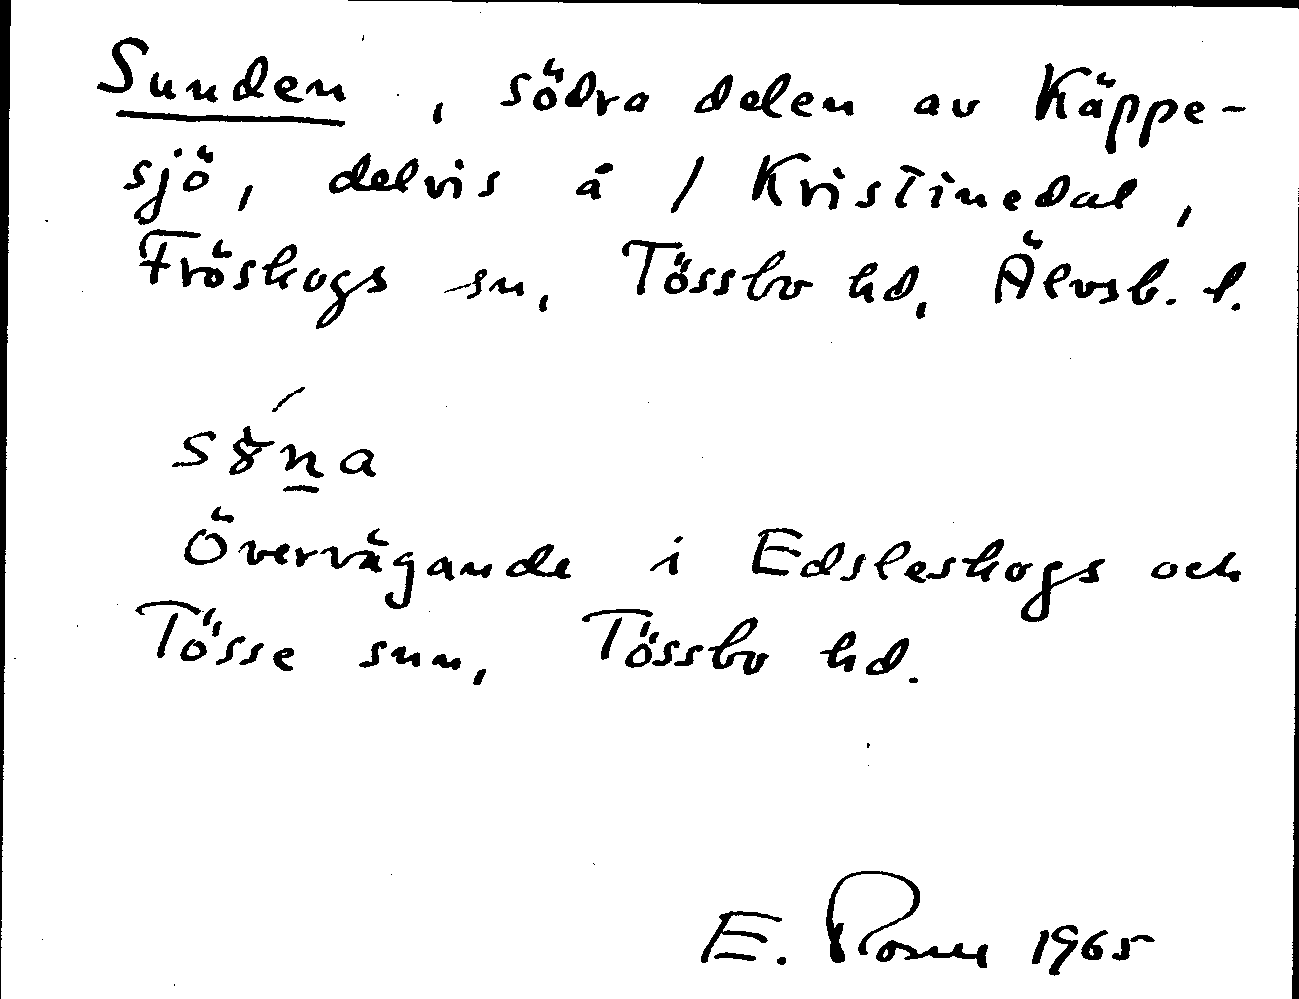 Sunden, södra delen av Käppe-
sjö, delvis å / Kristinedal,
Fröskogs sn, Tössbo hd, Älvsb. l.
Övervägande i Edsleskogs och
Tösse snn, Tössbo hd.
E. 1965